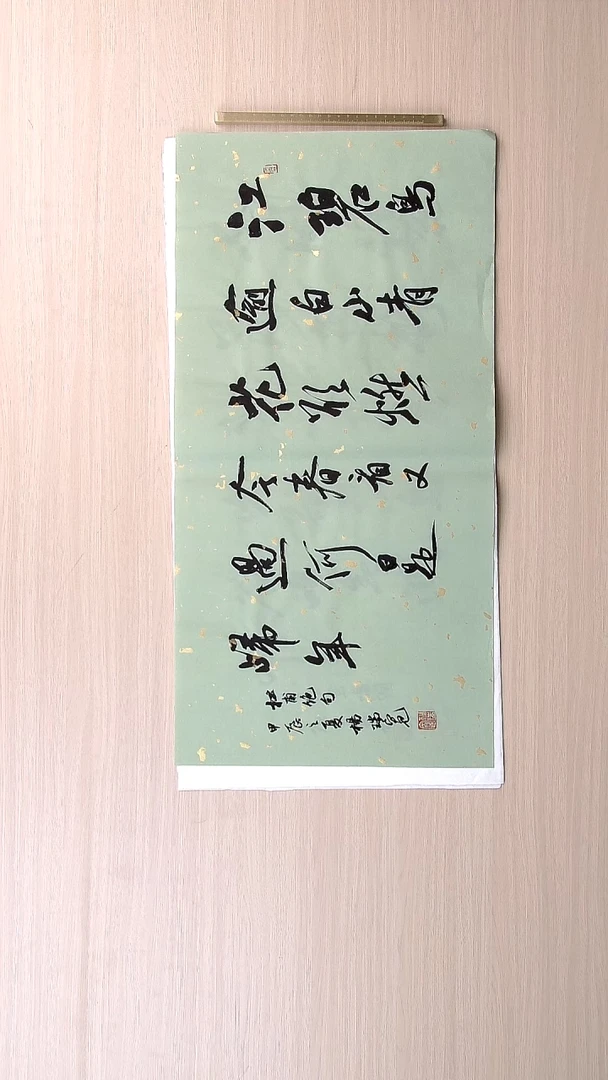 江碧鳥
逾白山青
花欲燃
今春看又
過何日是
歸年
杜甫絕句
甲辰之夏楊瑞